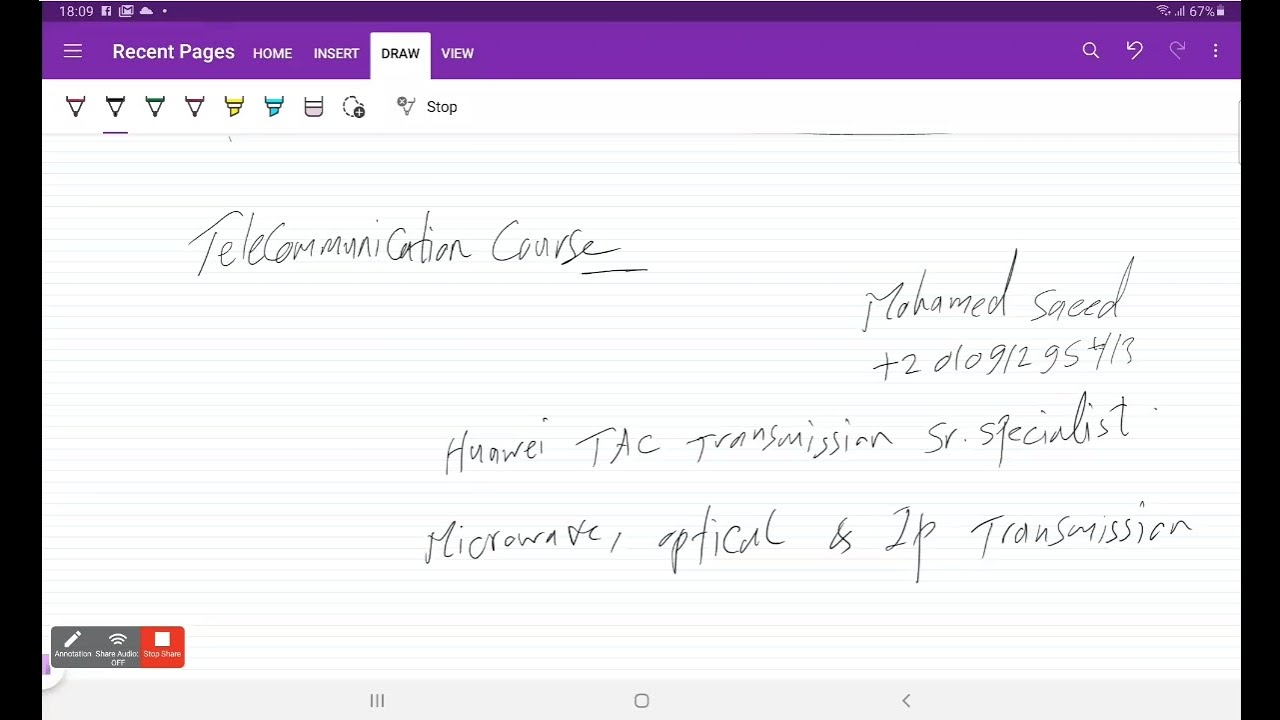 18:09 67%
Recent Pages HOME INSERT DRAW VIEW
Stop
Telecommunication Course
Mohamed Saeed
+2 01091295413
Huawei TAC Transmission Sr. Specialist.
Microwave, optical & Ip Transmission
Annotation Share Audio: OFF Stop Share